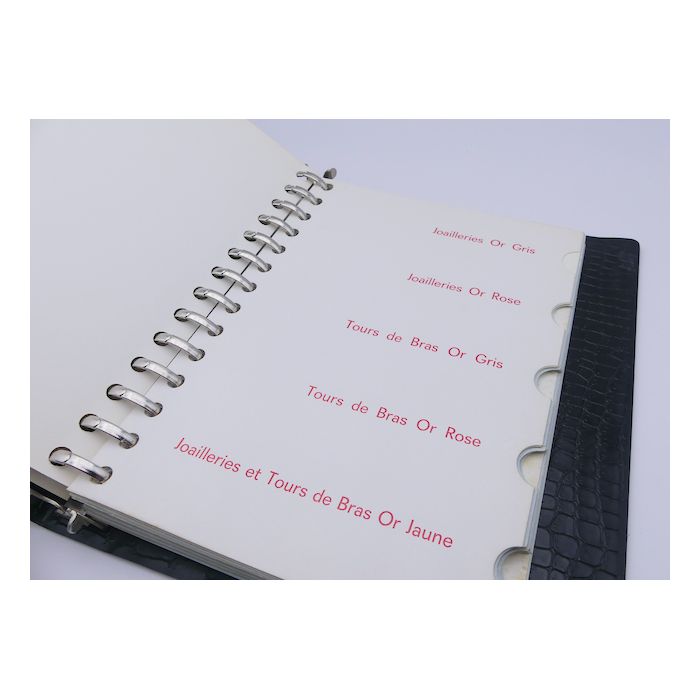 Joailleries Or Gris
Joailleries Or Rose
Tours de Bras Or Gris
Tours de Bras Or Rose
Joailleries et Tours de Bras Or Jaune